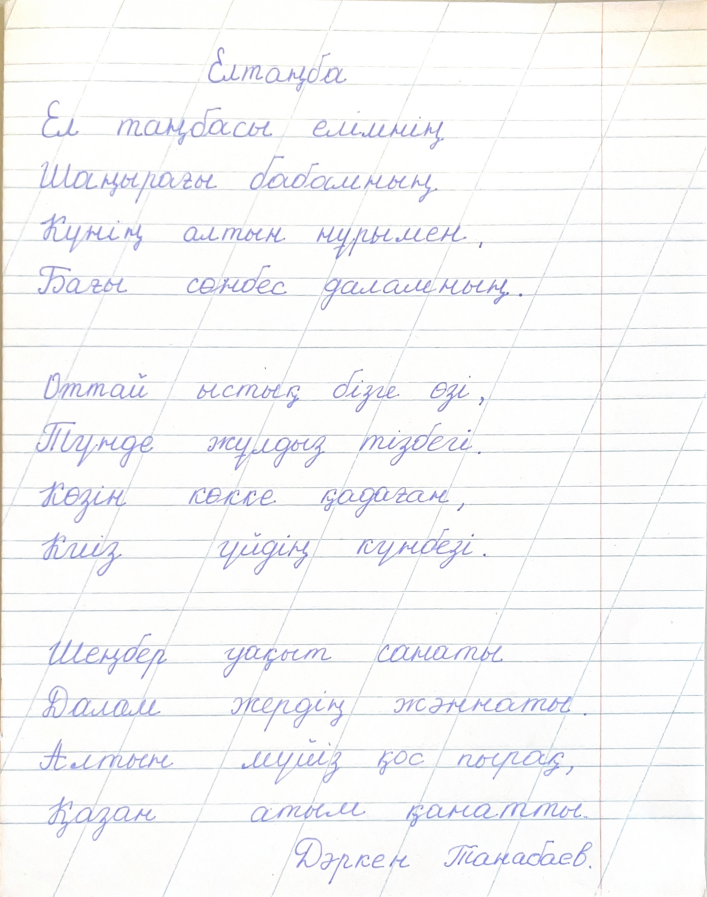 Елтаңба
Ел таңбасы елімнің
Шаңырағы бабамның
Күнің алтын нұрымен,
Бағы сөнбес даламның.
Оттай ыстық бізге өзі,
Түнде жұлдыз тізбегі.
Көзін көкке қадаған,
Киіз үйдің күнбезі.
Шеңбер уақыт санаты
Далам жердің жәннаты.
Алтын мүйіз қос пырақ,
Қазан атым қанатты.
Дәркен Танабаев.